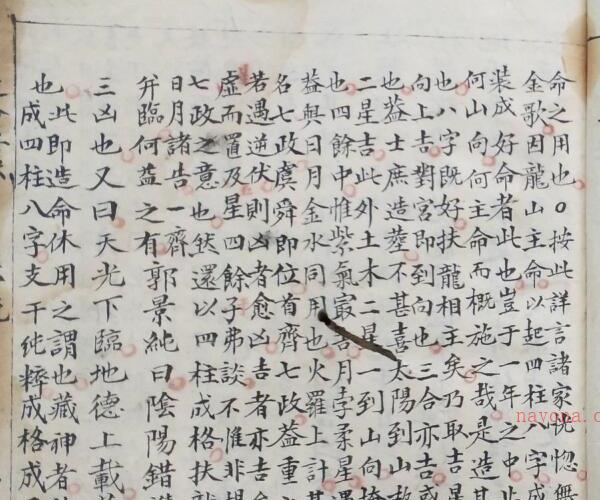 命之用也○按此詳言諸家恍惚無
金歌因龍山主命以起四柱八字成
裝成好命者此也豈于一年之中
何山向何主命而概施之哉是造
也八字既好扶龍相主矣乃取吉星
向上吉對宮即到向也三合亦吉
也葢士庶造塟不甚喜太陽到山
二星吉此外土木二星一到山向
也四餘中惟紫氣㝡吉月孛柔星遇
葢與日月金水同用也火羅上計
名七政虞舜即位首齊七政葢重
若遇逆伏則凶者愈凶吉者亦吉
虛而置及星四餘子弗談不惟非
七政之意也然還以四柱成格扶龍
日月諸吉一齊
弁臨何益之有郭景純曰陰陽錯
三凶也又曰天光下臨地德上載
也此即造命休用之謂也藏神
也成四柱八字支干純粹成格成
nayona.c